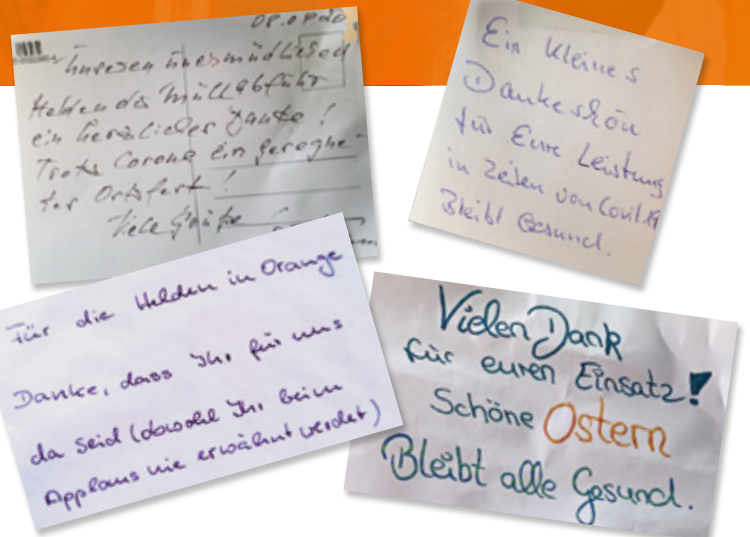 08.04.20
Unseren unermüdlichen
Helden der Müllabfuhr
ein herzliches Danke!
Trotz Corona ein
ter Ortsfert!
Viele Grüße
Ein kleines
Dankeschön
für Eure Leistung
in Zeiten von Covid 19
Bleibt Gesund.
Für die Helden in Orange
Danke, dass Ihr für uns
da seid (obwohl Ihr beim
Applaus nie erwähnt werdet)
Vielen Dank
für euren Einsatz!
Schöne Ostern
Bleibt alle Gesund.